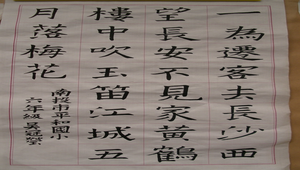 一為遷客去長沙西
望長安不見家黃鶴
樓中吹玉笛江城五
月落梅花
南投市平和國小
六年級吳冠